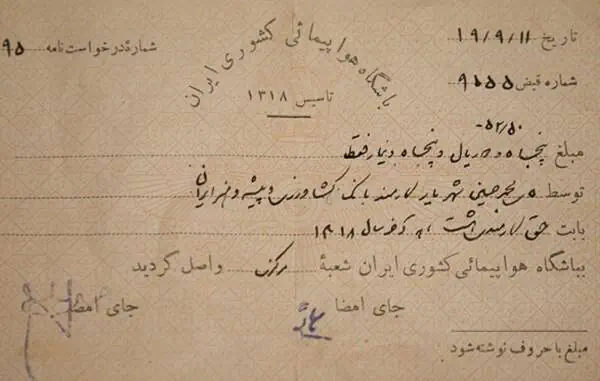 باشگاه هواپیمائی کشوری ایران
تاسیس ۱۳۱۸
تاریخ ۱۹/۹/۱۱
شمارهٔ درخواست نامه ۹۵
شماره قبض ۹۱۵۵
۵۲/۵۰-
مبلغ پنجاه و دو ریال و پنجاه دینار فقط
توسط محمدحسین شهریار کارمند بانک کشاورزی و پیشه و هنر ایران
بابت حق کارمندی هشت ماهه آخر سال ۱۳۱۸
بباشگاه هواپیمائی کشوری ایران شعبهٔ مرکز واصل گردید
جای امضا
جای امضا
مبلغ با حروف نوشته شود